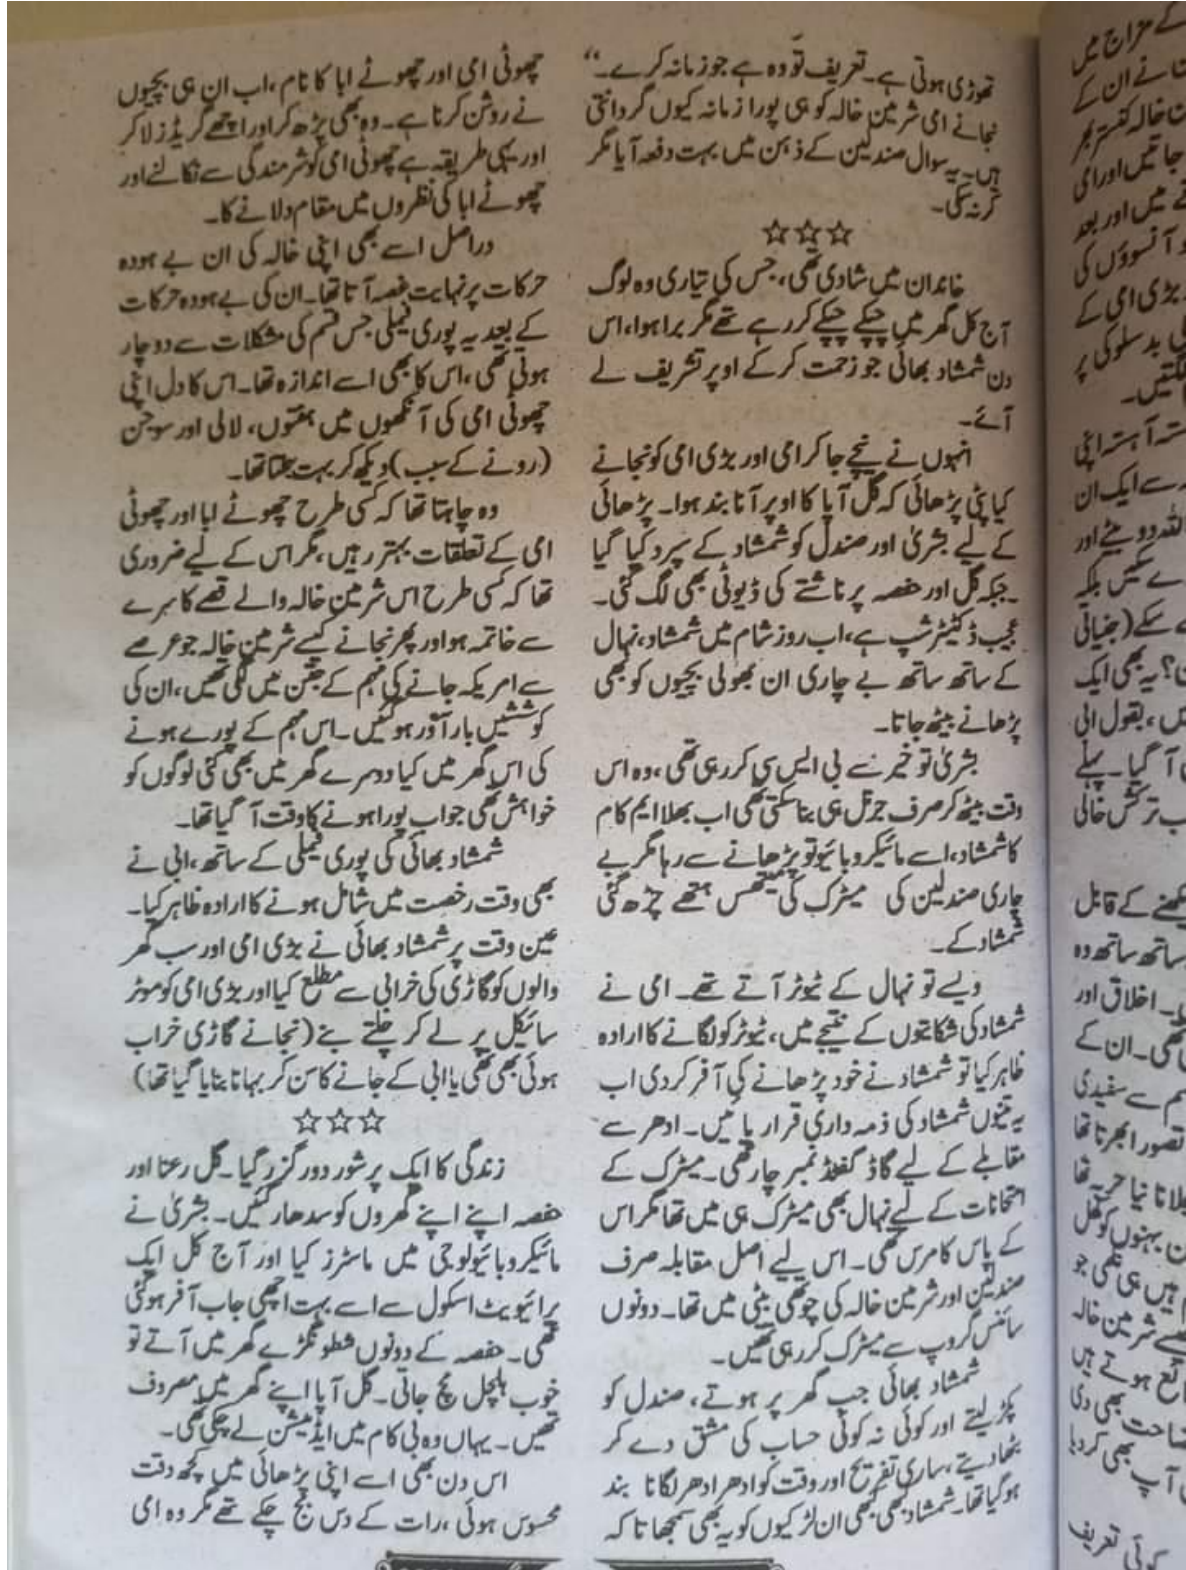 تھوڑی ہوتی ہے۔ تعریف تو وہ ہے جو زمانہ کرے۔“
نجانے امی شرمین خالہ کو ہی پورا زمانہ کیوں گردانتی
ہیں۔ یہ سوال صندلین کے ذہن میں بہت دفعہ آیا مگر
کر نہ سکی۔
☆☆☆
خاندان میں شادی تھی، جس کی تیاری وہ لوگ
آج کل گھر میں چپکے چپکے کر رہے تھے مگر برا ہوا، اس
دن شمشاد بھائی جو زحمت کر کے اوپر تشریف لے
آئے۔
انہوں نے نیچے جا کر امی اور بڑی امی کو نجانے
کیا پٹی پڑھائی کہ گل آپا کا اوپر آنا بند ہوا۔ پڑھائی
کے لیے بشریٰ اور صندل کو شمشاد کے سپرد کیا گیا
۔جبکہ گل اور حفصہ پر ناشتے کی ڈیوٹی بھی لگ گئی۔
عجیب ڈکٹیٹر شپ ہے، اب روز شام میں شمشاد، نہال
کے ساتھ ساتھ بے چاری ان بھولی بچیوں کو بھی
پڑھانے بیٹھ جاتا۔
بشریٰ تو خیر سے بی ایس سی کر رہی تھی، وہ اس
وقت بیٹھ کر صرف جرنل ہی بنا سکتی تھی اب بھلا ایم کام
کا شمشاد، اسے مائیکرو بائیو تو پڑھانے سے رہا مگر بے
چاری صندلین کی میٹرک کی میتھس ہتھے چڑھ گئی
شمشاد کے۔
ویسے تو نہال کے ٹیوٹر آتے تھے۔ امی نے
شمشاد کی شکایتوں کے نتیجے میں، ٹیوٹر کو لگانے کا ارادہ
ظاہر کیا تو شمشاد نے خود پڑھانے کی آفر کر دی اب
یہ تینوں شمشاد کی ذمہ داری قرار پائیں۔ ادھر سے
مقابلے کے لیے گاڈ گفٹڈ نمبر چار تھی۔ میٹرک کے
امتحانات کے لیے نہال بھی میٹرک ہی میں تھا مگر اس
کے پاس کامرس تھی۔ اس لیے اصل مقابلہ صرف
صندلین اور شرمین خالہ کی چوتھی بیٹی میں تھا۔ دونوں
سائنس گروپ سے میٹرک کر رہی تھیں۔
شمشاد بھائی جب گھر پر ہوتے، صندل کو
پکڑ لیتے اور کوئی نہ کوئی حساب کی مشق دے کر
بٹھا دیتے، ساری تفریح اور وقت کو ادھر ادھر لگانا بند
ہو گیا تھا۔ شمشاد بھی کبھی ان لڑکیوں کو یہ بھی سمجھاتا کہ
چھوٹی امی اور چھوٹے ابا کا نام، اب ان ہی بچیوں
نے روشن کرنا ہے۔ وہ بھی پڑھ کر اور اچھے گریڈز لا کر
اور یہی طریقہ ہے چھوٹی امی کو شرمندگی سے نکالنے اور
چھوٹے ابا کی نظروں میں مقام دلانے کا۔
دراصل اسے بھی اپنی خالہ کی ان بے ہودہ
حرکات پر نہایت غصہ آتا تھا۔ ان کی بے ہودہ حرکات
کے بعد یہ پوری فیملی جس قسم کی مشکلات سے دوچار
ہوتی تھی، اس کا بھی اسے اندازہ تھا۔ اس کا دل اپنی
چھوٹی امی کی آنکھوں میں ہفتوں، لالی اور سوجن
(رونے کے سبب) دیکھ کر بہت جلتا تھا۔
وہ چاہتا تھا کہ کسی طرح چھوٹے ابا اور چھوٹی
امی کے تعلقات بہتر رہیں، مگر اس کے لیے ضروری
تھا کہ کسی طرح اس شرمین خالہ والے قصے کا سرے
سے خاتمہ ہو اور پھر نجانے کیسے شرمین خالہ جو عرصے
سے امریکہ جانے کی مہم کے جتن میں لگی تھیں، ان کی
کوششیں بار آور ہو گئیں۔ اس مہم کے پورے ہونے
کی اس گھر میں کیا دوسرے گھر میں بھی کتنی لوگوں کو
خواہش تھی جو اب پورا ہونے کا وقت آ گیا تھا۔
شمشاد بھائی کی پوری فیملی کے ساتھ، ابی نے
بھی وقت رخصت میں شامل ہونے کا ارادہ ظاہر کیا۔
عین وقت پر شمشاد بھائی نے بڑی امی اور سب گھر
والوں کو گاڑی کی خرابی سے مطلع کیا اور بڑی امی کو موٹر
سائیکل پر لے کر چلتے بنے (نجانے گاڑی خراب
ہوئی بھی تھی یا ابی کے جانے کا سن کر بہانا بنایا گیا تھا)
☆☆☆
زندگی کا ایک پرشور دور گزر گیا۔ گل رعنا اور
حفصہ اپنے اپنے گھروں کو سدھار گئیں۔ بشریٰ نے
مائیکرو بائیولوجی میں ماسٹرز کیا اور آج کل ایک
پرائیویٹ اسکول سے اسے بہت اچھی جاب آفر ہو گئی
تھی۔ حفصہ کے دونوں شطونگڑے گھر میں آتے تو
خوب ہلچل مچ جاتی۔ گل آپا اپنے گھر میں مصروف
تھیں۔ یہاں وہ بی کام میں ایڈمیشن لے چکی تھی۔
اس دن بھی اسے اپنی پڑھائی میں کچھ دقت
محسوس ہوئی، رات کے دس بج چکے تھے مگر وہ امی
کے مزاج میں
نے ان کے
جاتیں اور امی
میں اور بعد
آنسوؤں کی
بڑی امی کے
بدسلوکی پر
آہستہ اپنی
سے ایک ان
دو بیٹے اور
بلکہ
یہ بھی ایک
، بقول ابی
آ گیا۔ پہلے
ترکش خالی
کے قابل
ساتھ ساتھ وہ
۔ اخلاق اور
تھی۔ ان کے
سے سفیدی
تصور ابھرتا تھا
نیا حربہ تھا
بہنوں کو گل
میں ہی تھی جو
شرمین خالہ
ہوتے ہیں
بھی دی
آپ بھی کر دیا
کوئی تعریف